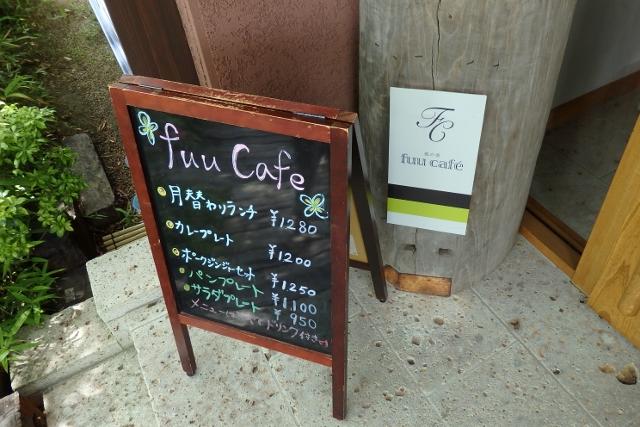 fuu Cafe
月替わりランチ ¥1280
カレープレート ¥1200
ポークジンジャーセット ¥1250
パンプレート ¥1,100
サラダプレート ¥950
メニューは ドリンク付き
FC
fuu café